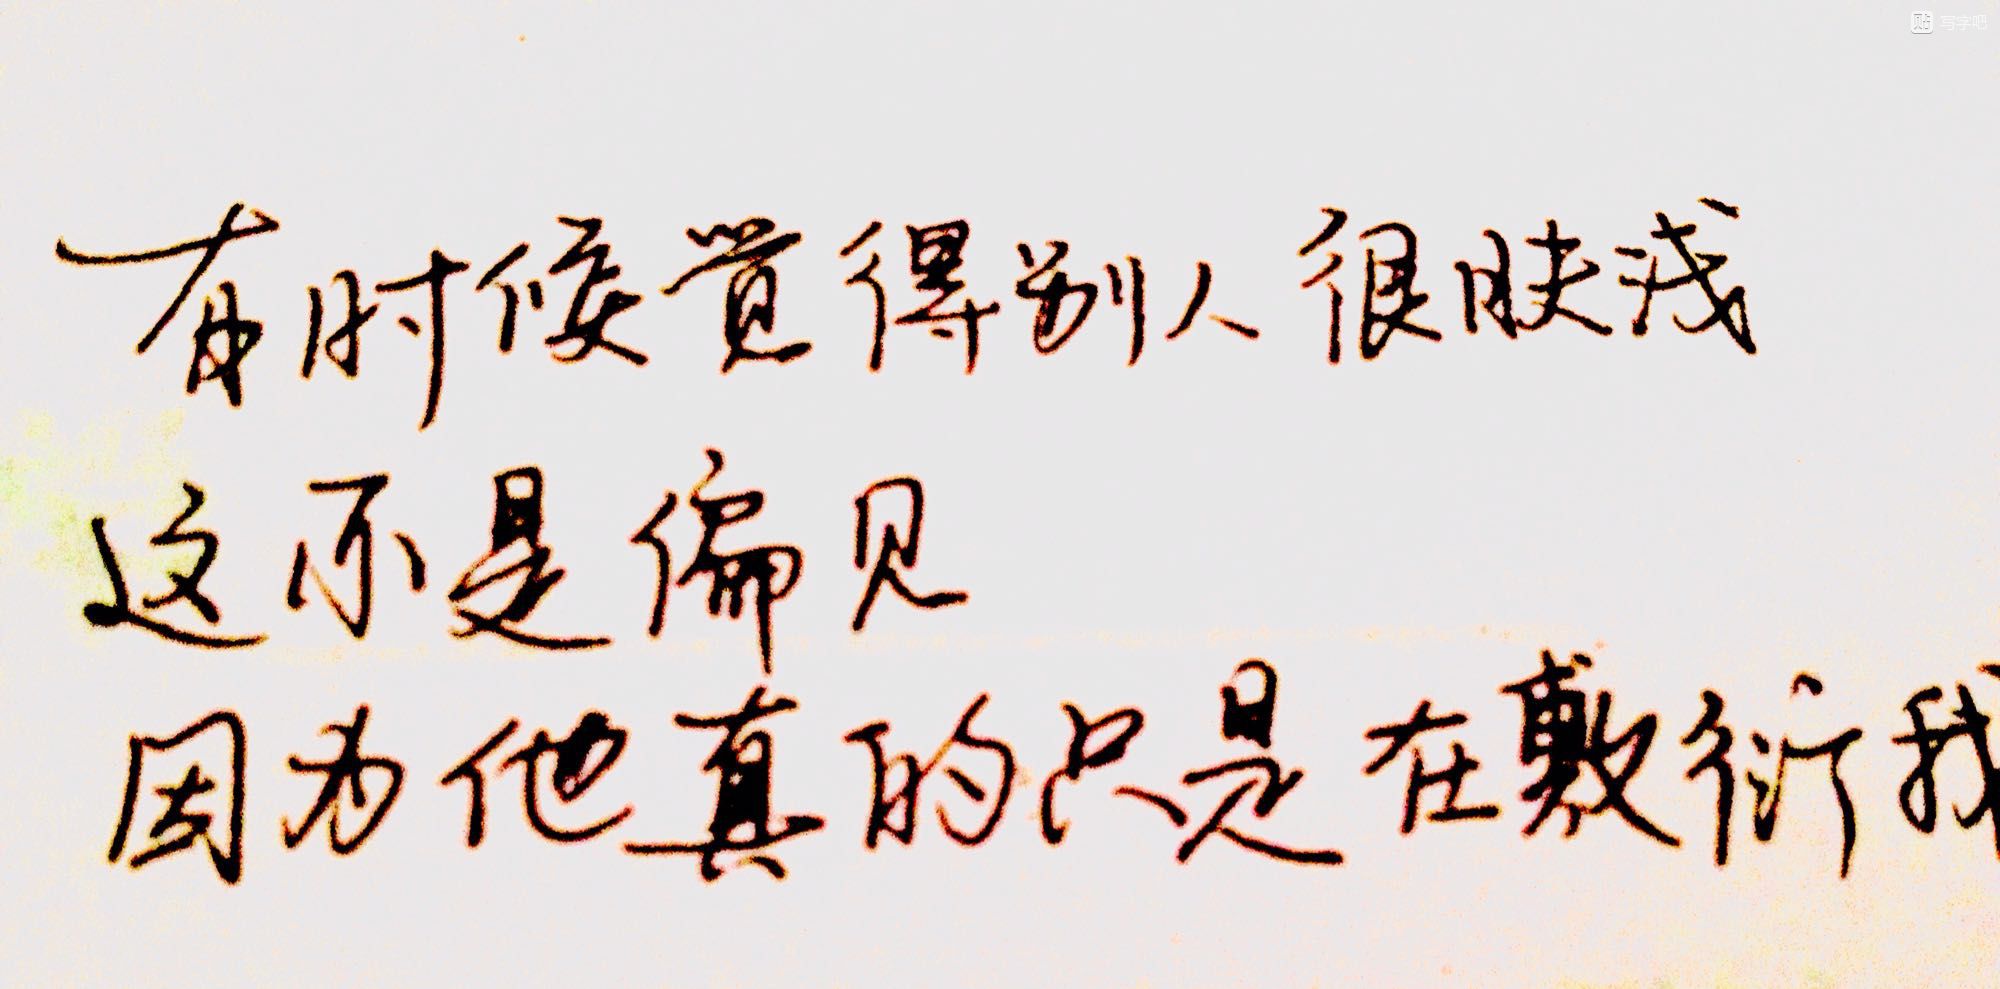 贴 写字吧
有时候觉得别人很肤浅
这不是偏见
因为他真的只是在敷衍我